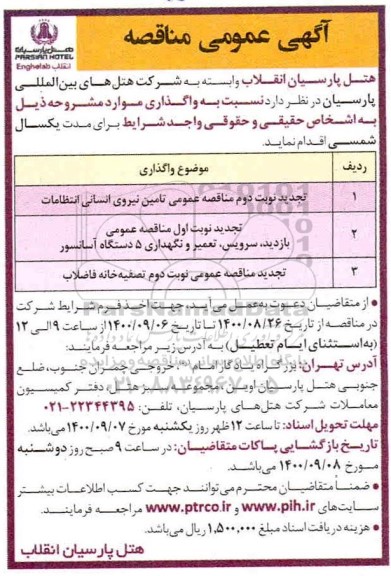 آگهی عمومی مناقصه
هتل پارسیان
PARSIAN HOTEL
انقلاب Enghelab
هتل پارسیان انقلاب وابسته به شرکت هتل های بین المللی
پارسیان در نظر دارد نسبت به واگذاری موارد مشروحه ذیل
به اشخاص حقیقی و حقوقی واجد شرایط برای مدت یکسال
شمسی اقدام نماید.
ردیف موضوع واگذاری
۱ تجدید نوبت دوم مناقصه عمومی تامین نیروی انسانی انتظامات
۲ تجدید نوبت اول مناقصه عمومی
بازدید، سرویس، تعمیر و نگهداری ۵ دستگاه آسانسور
۳ تجدید مناقصه عمومی نوبت دوم تصفیه خانه فاضلاب
• از متقاضیان دعوت به عمل می آید، جهت اخذ فرم شرایط شرکت
در مناقصه از تاریخ ۱۴۰۰/۰۸/۲۶ تا تاریخ ۱۴۰۰/۰۹/۰۶ از ساعت ۹ الی ۱۲
(به استثنای ایام تعطیل) به آدرس زیر مراجعه فرمایند:
آدرس تهران: بزرگراه یادگار امام «ره»، خروجی چمران جنوب، ضلع
جنوبی هتل پارسیان اوین، مجموعه سبز هتل، دفتر کمیسیون
معاملات شرکت هتل های پارسیان، تلفن: ۲۲۳۴۴۳۹۵-۰۲۱
مهلت تحویل اسناد: تا ساعت ۱۲ ظهر روز یکشنبه مورخ ۱۴۰۰/۰۹/۰۷ می باشد.
تاریخ بازگشایی پاکات متقاضیان: در ساعت ۹ صبح روز دوشنبه
مورخ ۱۴۰۰/۰۹/۰۸ می باشد.
• ضمناً متقاضیان محترم می توانند جهت کسب اطلاعات بیشتر
سایت های www.pih.ir و www.ptrco.ir مراجعه فرمایند.
• هزینه دریافت اسناد مبلغ ۱,۵۰۰,۰۰۰ ریال می باشد.
هتل پارسیان انقلاب